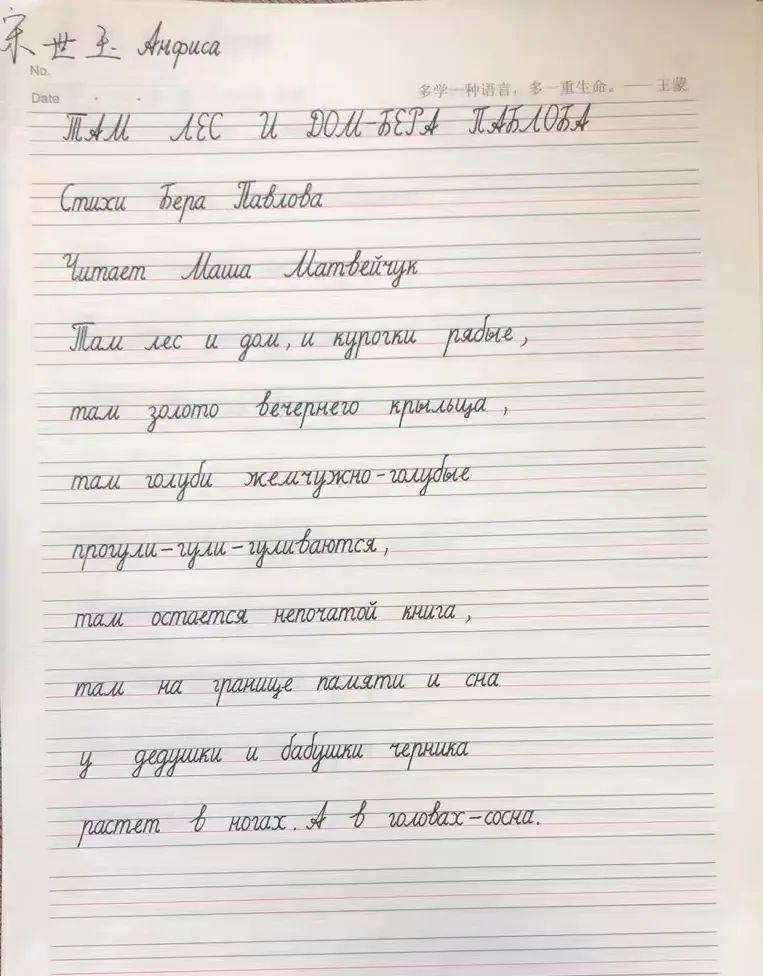 宋世玉 Анфиса
No.
Date
多学一种语言，多一重生命。——王蒙
ТАМ ЛЕС И ДОМ-БЕРА ПАБЛОБА
Стихи Бера Павлова
Читает Маша Матвейчук
Там лес и дом, и курочки рябые,
там золото вечернего крыльца,
там голуби жемчужно-голубые
прогули-гули-гуливаются,
там остается непочатой книга,
там на границе памяти и сна
у дедушки и бабушки черника
растет в ногах. А в головах-сосна.